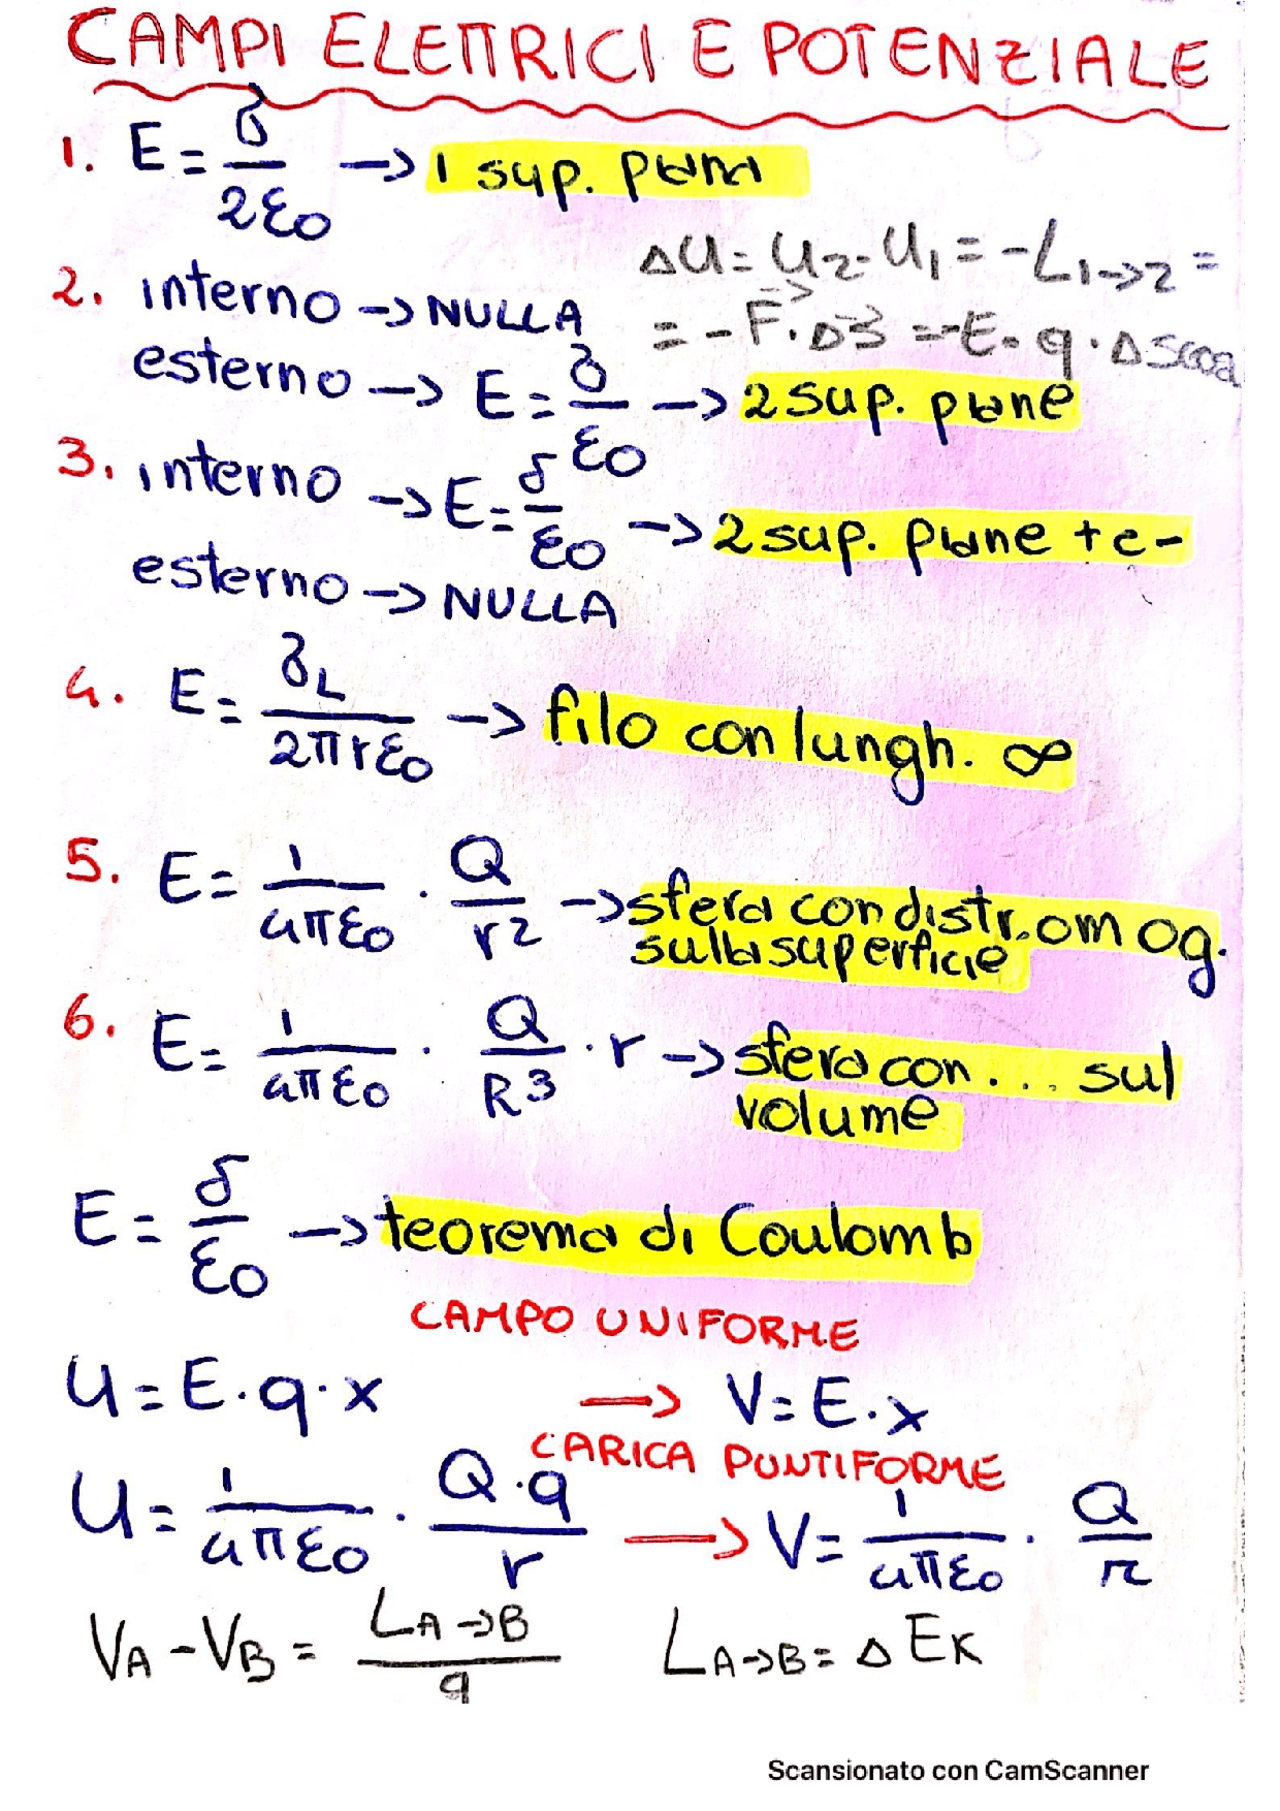 CAMPI ELETTRICI E POTENZIALE
1. E = δ/2ε0 → 1 sup. piana
ΔU = U2 - U1 = -L1→2 =
= -F⃗ · Δs⃗ = -E · q · Δs cosα
2. interno → NULLA
esterno → E = δ/ε0 → 2 sup. piane
3. interno → E = δ/ε0 → 2 sup. piane + e -
esterno → NULLA
4. E = δL/2πrε0 → filo con lungh. ∞
5. E = 1/4πε0 · Q/r2 → sfera con distr. omog.
sulla superficie
6. E = 1/4πε0 · Q/R3 · r → sfera con ... sul
volume
E = δ/ε0 → teorema di Coulomb
CAMPO UNIFORME
U = E · q · x → V = E · x
CARICA PUNTIFORME
U = 1/4πε0 · Q · q/r → V = 1/4πε0 · Q/r
VA - VB = LA→B/q LA→B = ΔEK
Scansionato con CamScanner